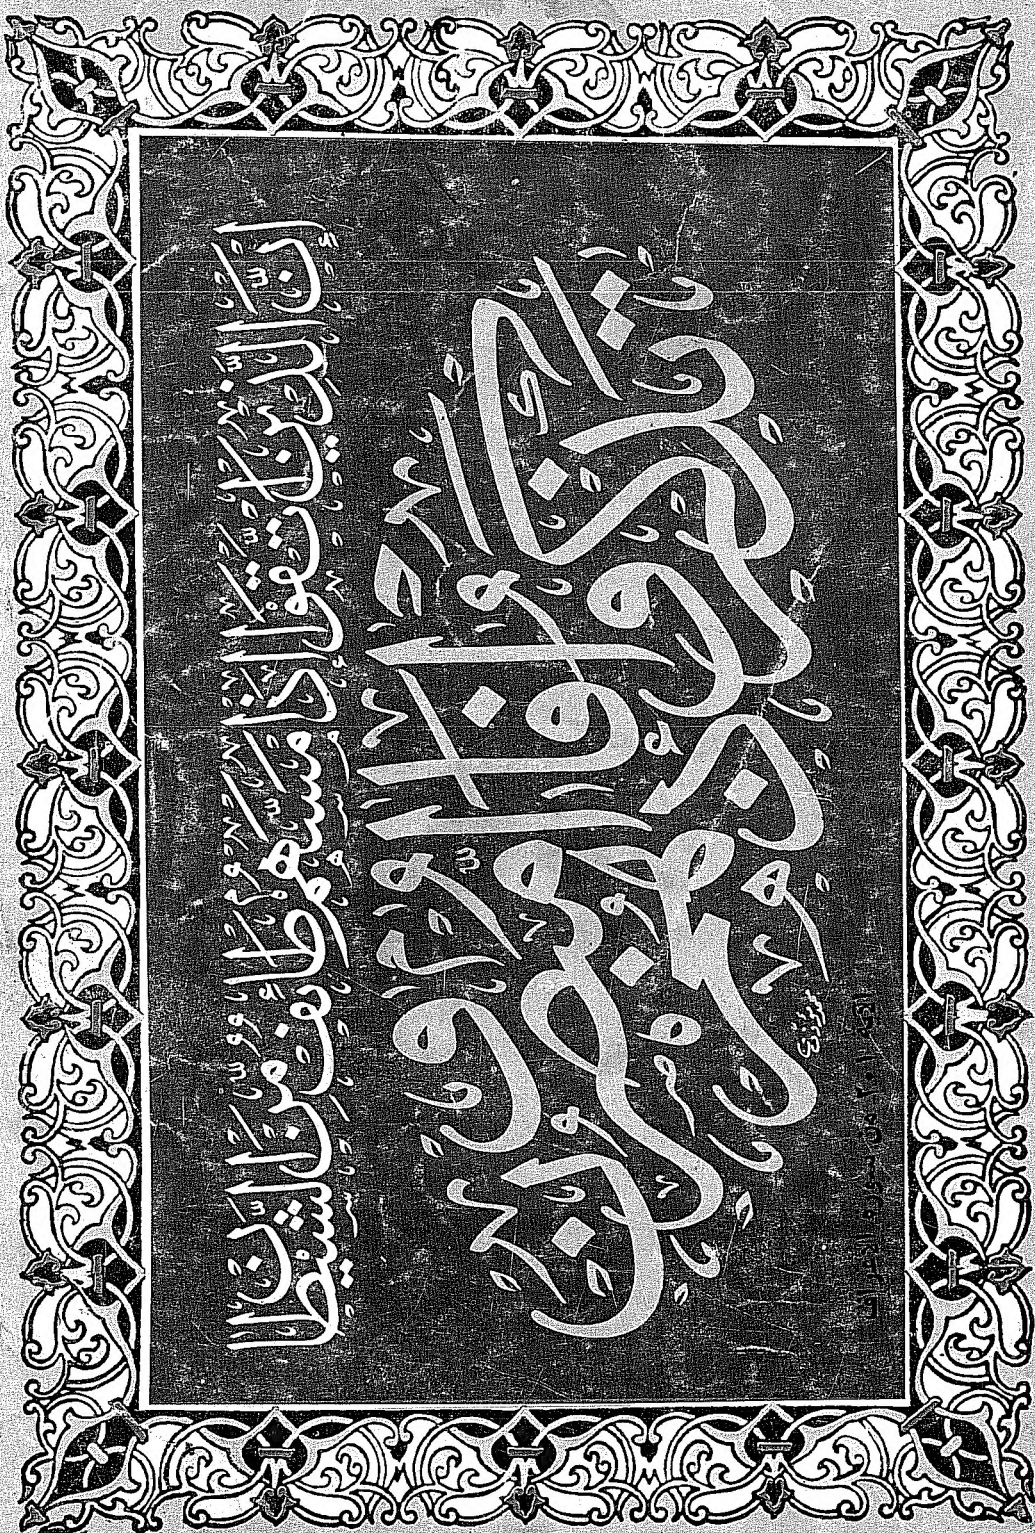 إِنَّ الَّذِينَ اتَّقَوْا إِذَا مَسَّهُمْ طَائِفٌ مِنَ الشَّيْطَانِ
تَذَكَّرُوا فَإِذَا هُمْ مُبْصِرُونَ
من سورة الأعراف